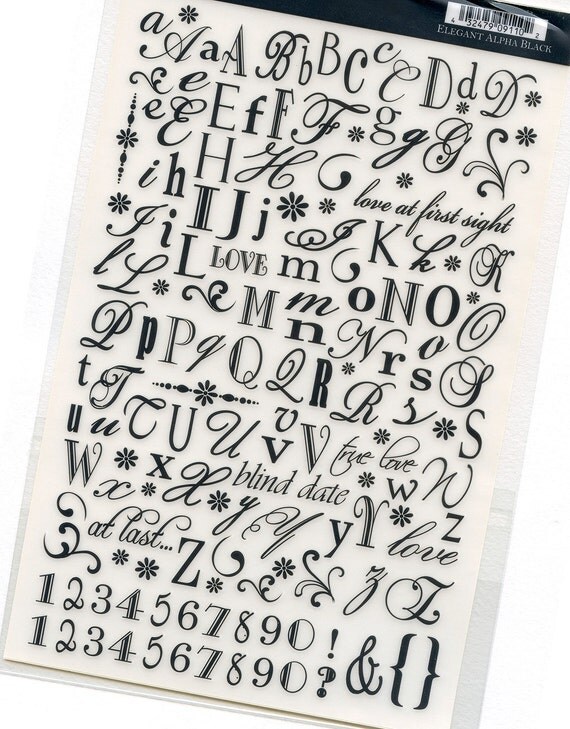 4 32479 09110 2
ELEGANT ALPHA BLACK
a A a A B b B C c C D d D
e e E E f F F g g G
i h H H
love at first sight
I i I J j I K k K
l L L LOVE m M m
o N O O
P p P q Q Q n N r s o S
R R s S
t T T U U v V
u u
true love
W x X blind date w W
x
at last... Z y Y y Y z
love
z Z
1 2 3 4 5 6 7 8 9 0 !
1 2 3 4 5 6 7 8 9 0 ? & { }